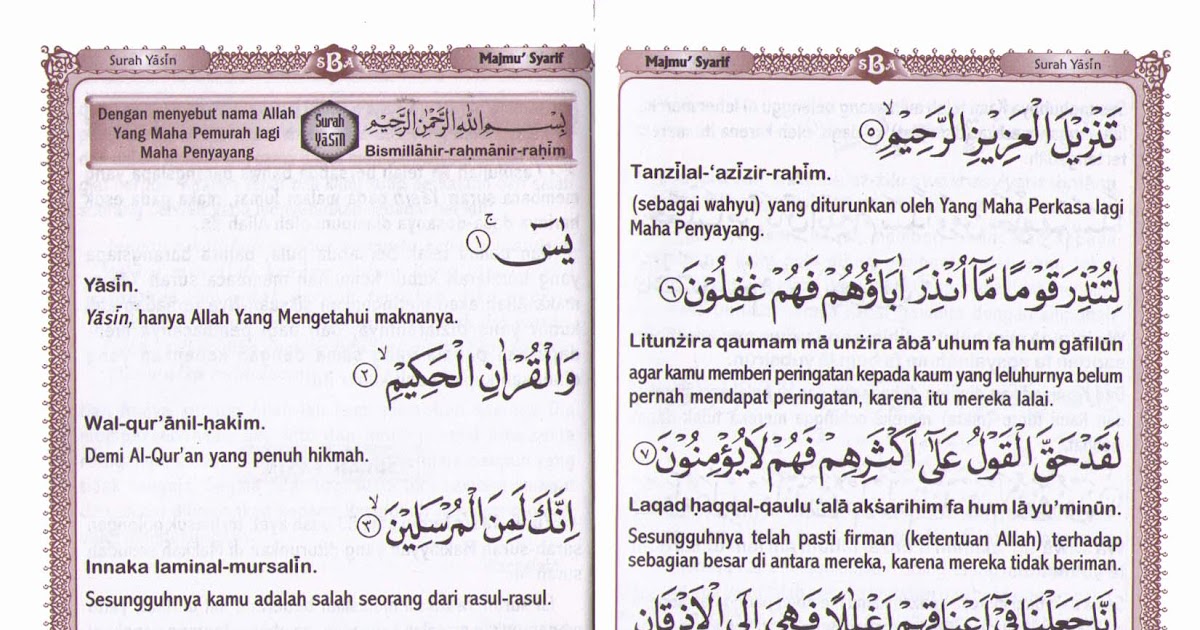 Surah Yāsīn
SBA
Majmu' Syarif
Dengan menyebut nama Allah
Yang Maha Pemurah lagi
Maha Penyayang
Surah
yāsīn
بِسْمِ اللّٰهِ الرَّحْمٰنِ الرَّحِيْمِ
Bismillāhir-rahmānir-raḥīm
يٰسۤ ۚ ١
Yāsīn.
Yāsin, hanya Allah Yang Mengetahui maknanya.
وَالْقُرْاٰنِ الْحَكِيْمِ ۙ ٢
Wal-qur'ānil-ḥakīm.
Demi Al-Qur'an yang penuh hikmah.
اِنَّكَ لَمِنَ الْمُرْسَلِيْنَ ۙ ٣
Innaka laminal-mursalīn.
Sesungguhnya kamu adalah salah seorang dari rasul-rasul.
Majmu' Syarif
SBA
Surah Yāsīn
تَنْزِيْلَ الْعَزِيْزِ الرَّحِيْمِ ۙ ٥
Tanzīlal-'azīzir-raḥīm.
(sebagai wahyu) yang diturunkan oleh Yang Maha Perkasa lagi
Maha Penyayang.
لِتُنْذِرَ قَوْمًا مَّآ اُنْذِرَ اٰبَاۤؤُهُمْ فَهُمْ غٰفِلُوْنَ ٦
Litunżira qaumam mā unżira ābā'uhum fa hum gāfilūn
agar kamu memberi peringatan kepada kaum yang leluhurnya belum
pernah mendapat peringatan, karena itu mereka lalai.
لَقَدْ حَقَّ الْقَوْلُ عَلٰٓى اَكْثَرِهِمْ فَهُمْ لَا يُؤْمِنُوْنَ ٧
Laqad ḥaqqal-qaulu 'alā akšarihim fa hum lā yu'minūn.
Sesungguhnya telah pasti firman (ketentuan Allah) terhadap
sebagian besar di antara mereka, karena mereka tidak beriman.
اِنَّا جَعَلْنَا فِيْٓ اَعْنَاقِهِمْ اَغْلٰلًا فَهِيَ اِلَى الْاَذْقَانِ